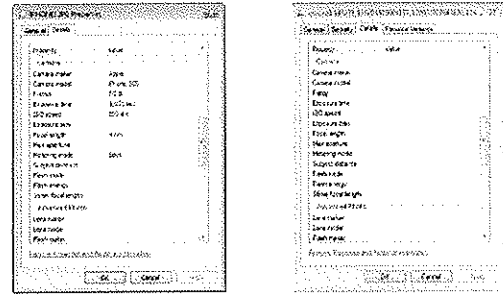 General Details
Property Value
Camera
Camera maker Apple
Camera model
F-stop
Exposure time
ISO speed
Exposure bias
Focal length
Max aperture
Metering mode Spot
Subject distance
Flash mode
Flash energy
35mm focal length
Advanced Photo
Lens maker
Lens model
Flash maker
Remove Properties and Personal Information
OK Cancel
General Security Details Previous Versions
Property Value
Camera
Camera maker
Camera model
F-stop
Exposure time
ISO speed
Exposure bias
Focal length
Max aperture
Metering mode
Subject distance
Flash mode
Flash energy
35mm focal length
Advanced Photo
Lens maker
Lens model
Flash maker
Remove Properties and Personal Information
OK Cancel